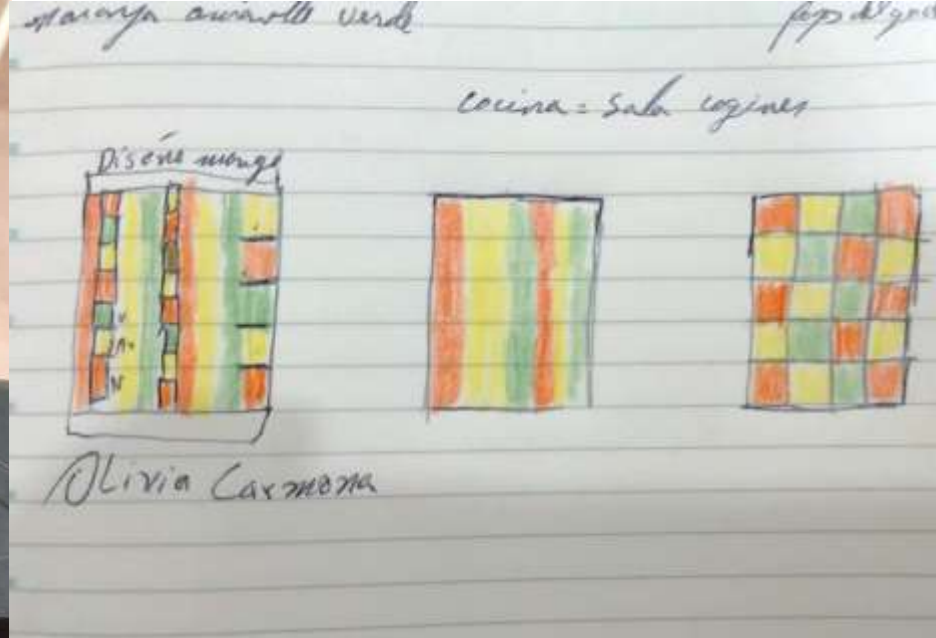 naranja amarillo verde
cocina = sala cogines
Diseño mango
V
N
Olivia Carmona